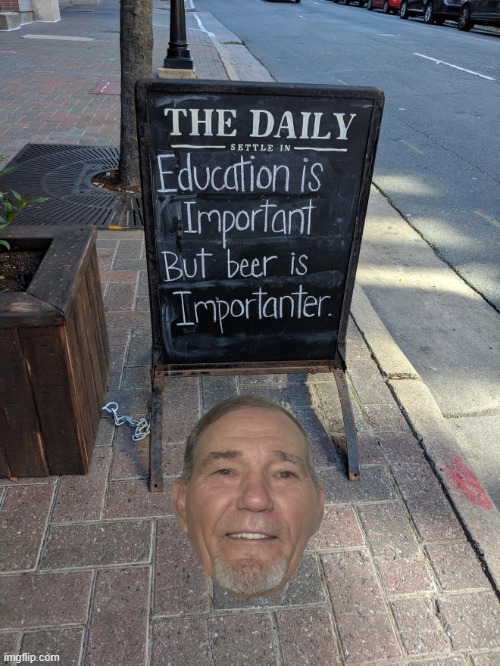 THE DAILY
SETTLE IN
Education is
Important
But beer is
Importanter.
imgflip.com